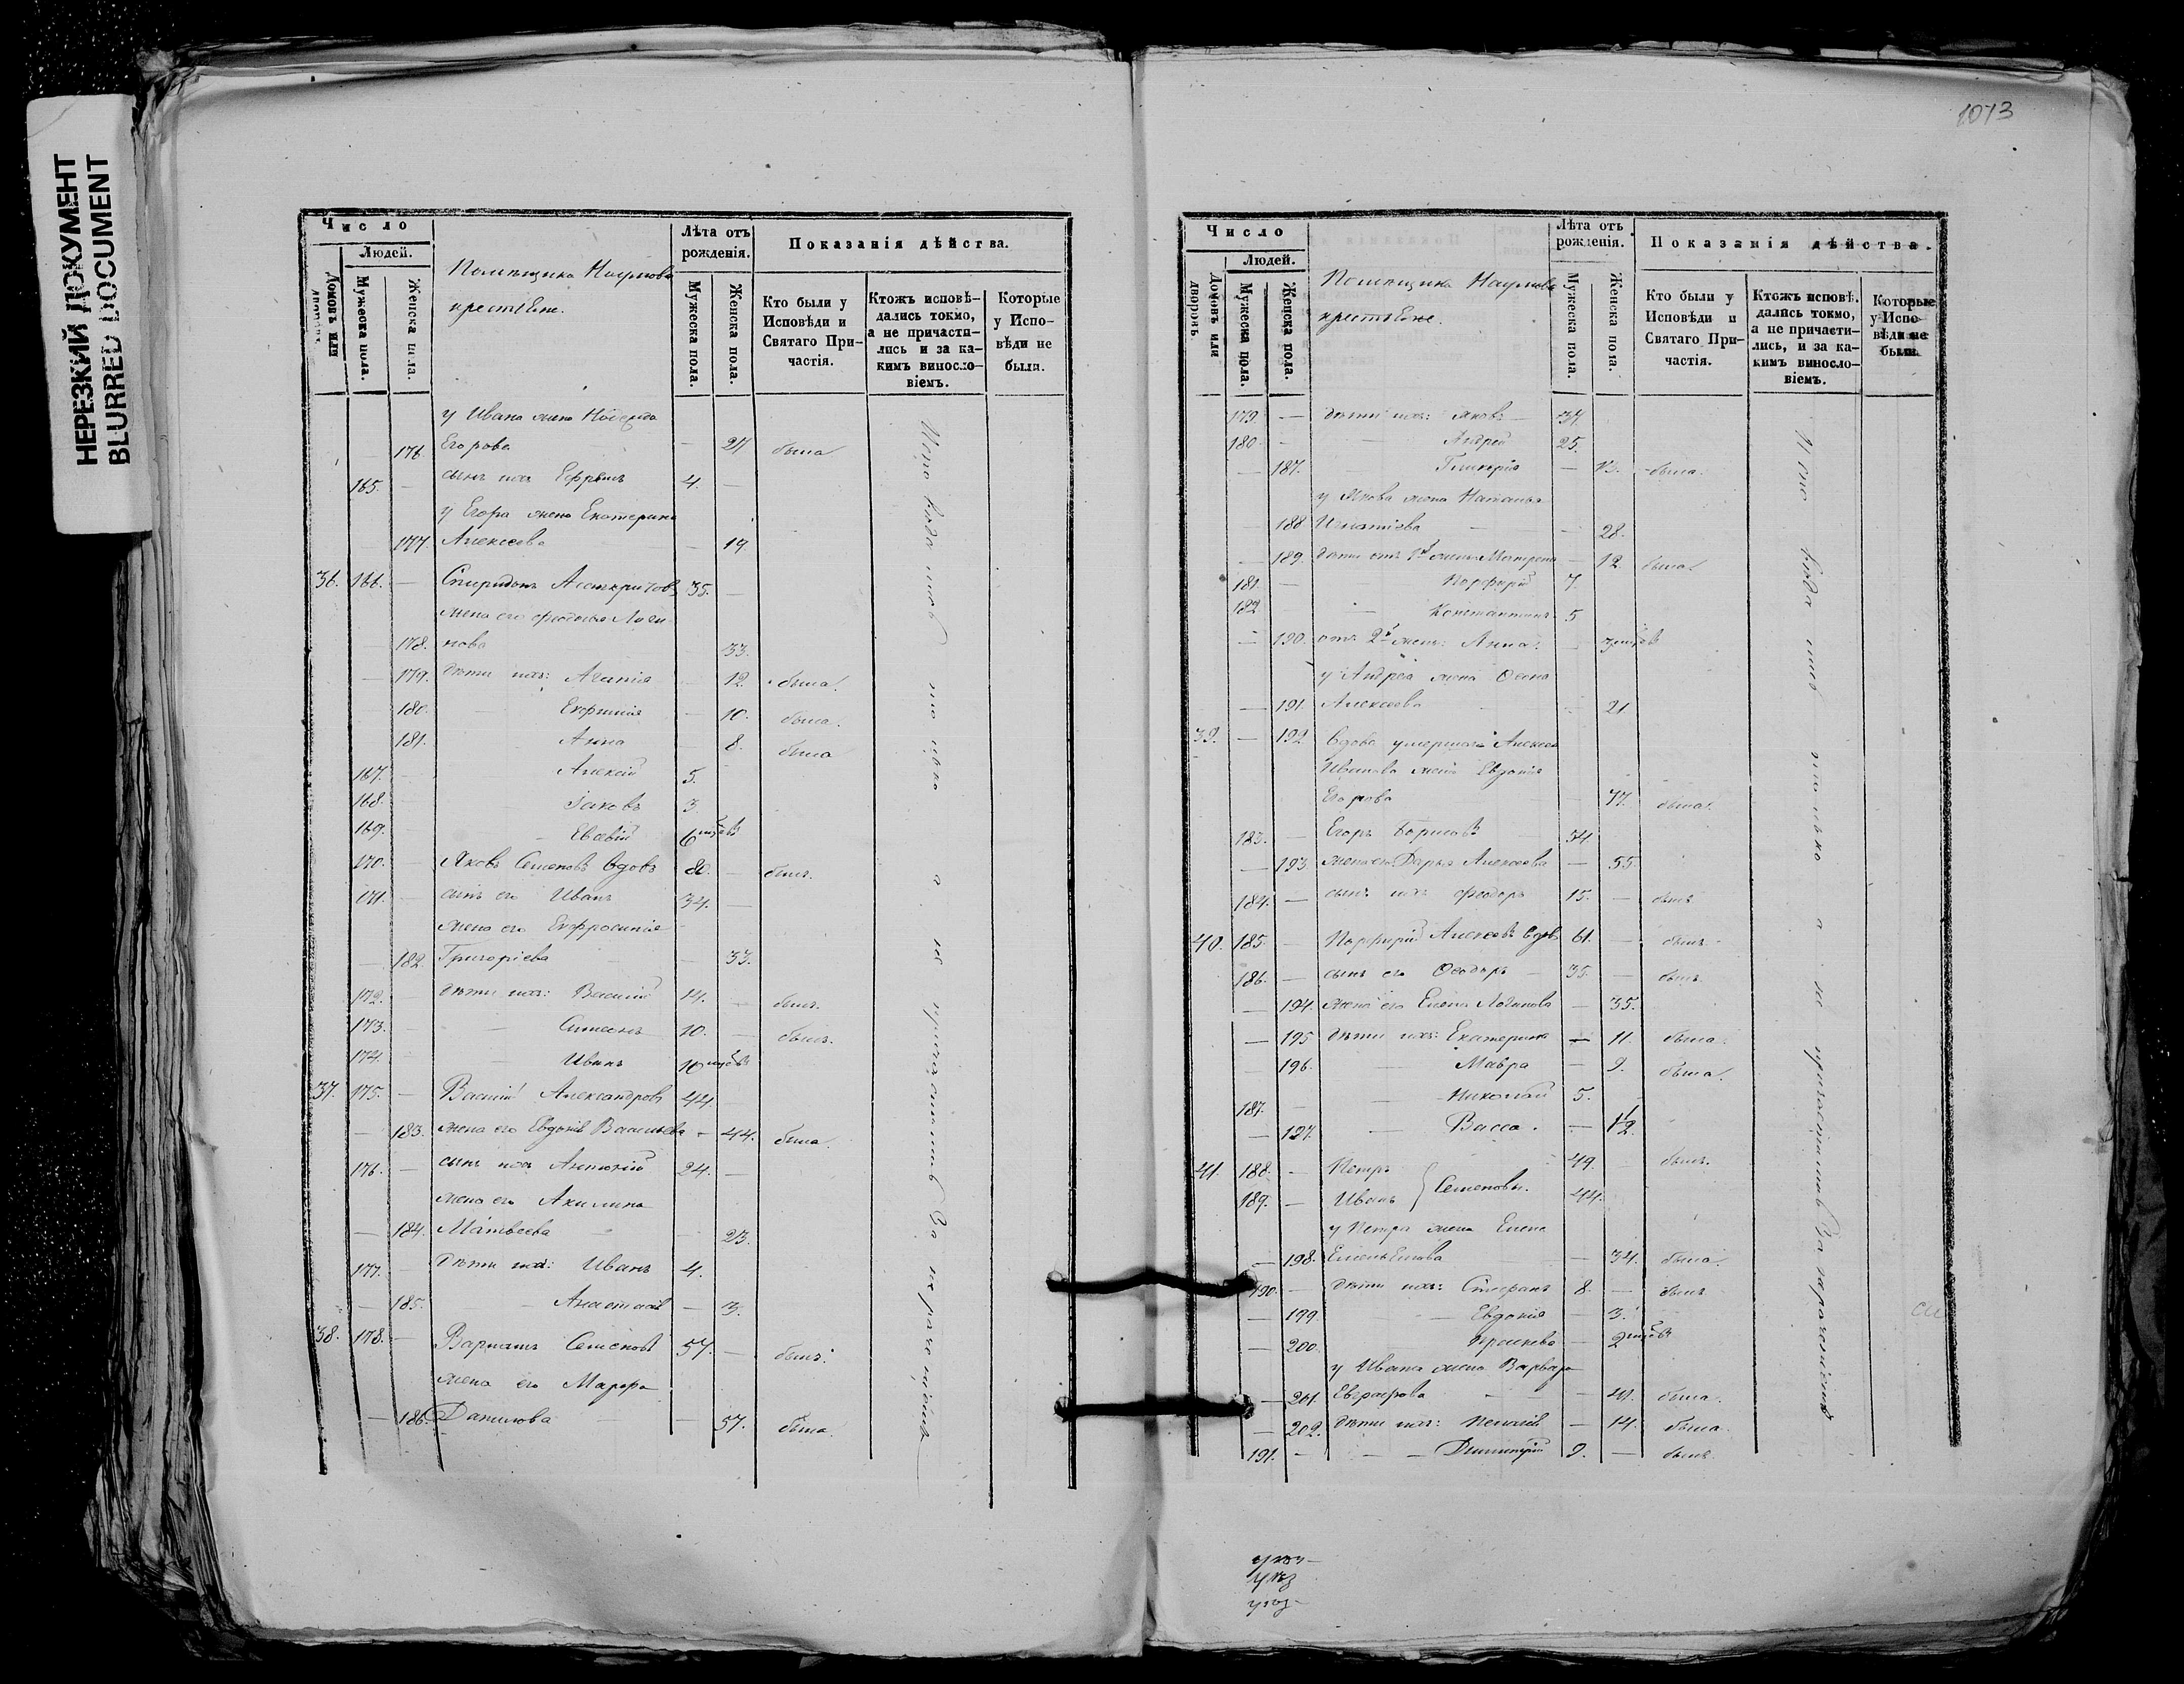 НЕРЕЗКИЙ ДОКУМЕНТ
BLURRED DOCUMENT
Число
Людей.
Домовъ или дворовъ.
Мужеска пола.
Женска пола.
Помѣщика Наумова
крестьяне.
Лѣта отъ рожденія.
Мужеска пола.
Женска пола.
Показанія дѣйства.
Кто были у Исповѣди и Святаго Причастія.
Ктожъ исповѣдались токмо, а не причастились и за какимъ винословіемъ.
Которые у Исповѣди не были.
у Ивана жена
176. Егорова — 21 была
165. — сынъ ихъ Ефремъ 4. —
у Егора жена Екатерина
177. Алексеева 19
36. 166. — Спиридонъ 35. —
жена его Феодосья Логи
178. нова 33.
179. дѣти ихъ: Агапія 12. была.
180. Евфимія 10. была.
181. Анна 8. была
167. Алексій 5.
168. Іаковъ 3
169. Евсевій 6
170. Яковъ Семеновъ вдовъ 80. — былъ.
171. сынъ его Иванъ 34. —
жена его Евфросинія
182. Григоріева 33.
172. дѣти ихъ: Василій 14. былъ.
173. Симеонъ 10. былъ.
174. Иванъ 10
37. 175. — Василій Александровъ 44.
183. жена его Евдокія Васильева — 44. была.
176. — сынъ ихъ Антоній 24. —
жена его Акилина
184. Матвеева 23.
177. дѣти ихъ: Иванъ 4.
185. Анастасія — 3.
38. 178. — Семеновъ 57. — былъ.
жена его Марфа
186. Данилова — 57. была.
1073
Число
Людей.
Домовъ или дворовъ
Мужеска пола.
Женска пола.
Помѣщика Наумова
крестьяне.
Лѣта отъ рожденія.
Мужеска пола.
Женска пола.
Показанія дѣйства.
Кто были у Исповѣди и Святаго Причастія.
Ктожъ исповѣдались токмо, а не причастились, и за какимъ винословіемъ.
Которые у Исповѣди не были.
179. — дѣти ихъ: Яковъ 34.
180. — Андрей 25.
187. Гликерія — 13. была.
у Якова жена Наталья
188 Игнатіева 28.
189. дѣти отъ 1й жены Матрена — 12. была.
181. — Порфирій 7.
182 Константинъ 5
— 190. отъ 2й жены: Анна.
у Андрея жена
— 191. Алексеева 21
39. — 192 вдова умершаго Алексея
Иванова жена Евдокія
Егорова 77. была.
183. — Егоръ Борисовъ 54
— 193. жена его Дарья Алексеева — 55.
184. — сынъ ихъ Феодоръ 15. — былъ
40. 185. Порфирій Алексеевъ вдовъ 61. — былъ.
186. — сынъ его Ѳеодоръ 35. — былъ
— 194. жена его Елена Логинова — 35.
— 195 дѣти ихъ: Екатерина — 11. была.
196. Мавра — 9. была.
187. — Николай 5.
— 197. Васса. — 1/2
41. 188. — Петръ 49. былъ.
189. — Иванъ } Семеновы. 44.
у Петра жена Елена
— 198. Емельянова — 34. была.
190. — дѣти ихъ: Стефанъ 8. — былъ
— 199. Евдокія — 3.
— 200.
у Ивана жена Варвара
— 201. Евграфова — 41. была.
— 202. дѣти ихъ: — 14. была.
191. — Димитрій 9. — былъ.